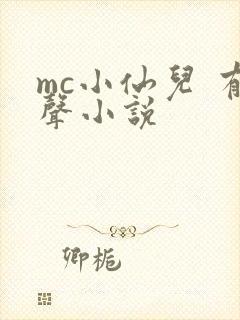 mc小仙兒 有
聲小說
卿栀